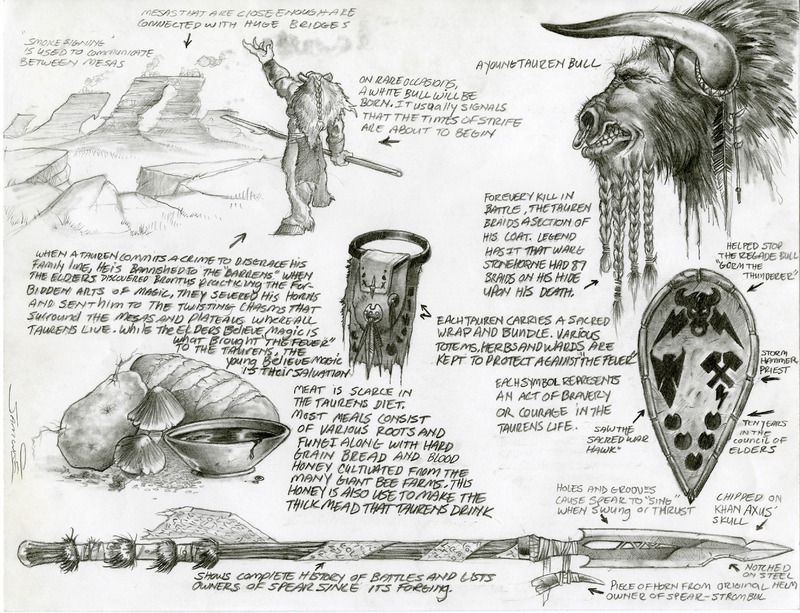 MESAS THAT ARE CLOSE ENOUGH ARE
CONNECTED WITH HUGE BRIDGES
"SMOKE SIGNING"
IS USED TO COMMUNICATE
BETWEEN MESAS
ON RARE OCCASIONS,
A WHITE BULL WILL BE
BORN. IT USUALLY SIGNALS
THAT THE TIMES OF STRIFE
ARE ABOUT TO BEGIN
A YOUNG TAUREN BULL
FOR EVERY KILL IN
BATTLE, THE TAUREN
BRAIDS A SECTION OF
HIS COAT. LEGEND
HAS IT THAT WARG
STONEHORNE HAD 87
BRAIDS ON HIS HIDE
UPON HIS DEATH.
WHEN A TAUREN COMMITS A CRIME TO DISGRACE HIS
FAMILY LINE, HE IS BANNISHED TO THE BARRENS" WHEN
THE ELDERS DISCOVERED BRONTUS PRACTICING THE FOR-
BIDDEN ARTS OF MAGIC, THEY SEVERED HIS HORNS
AND SENT HIM TO THE TWISTING CHASMS THAT
SURROUND THE MESAS AND PLATEAUS WHERE ALL
TAURENS LIVE. WHILE THE ELDERS BELIEVE MAGIC IS
WHAT BROUGHT THE FEVER"
TO THE TAURENS, THE
YOUNG BELIEVE MAGIC
IS THEIR SALVATION
EACH TAUREN CARRIES A SACRED
WRAP AND BUNDLE. VARIOUS
TOTEMS, HERBS AND WARDS ARE
KEPT TO PROTECT AGAINST "THE FEVER"
EACH SYMBOL REPRESENTS
AN ACT OF BRAVERY
OR COURAGE IN THE
TAURENS LIFE.
HELPED STOP
THE REGADE BULL
"GORM THE
THUNDERER"
STORM
HAMMER
PRIEST
TEN YEARS
IN THE
COUNCIL OF
ELDERS
SAW THE
SACRED WAR
HAWK"
MEAT IS SCARCE IN
THE TAURENS DIET.
MOST MEALS CONSIST
OF VARIOUS ROOTS AND
FUNGI ALONG WITH HARD
GRAIN BREAD AND BLOOD
HONEY CULTIVATED FROM THE
MANY GIANT BEE FARMS. THIS
HONEY IS ALSO USE TO MAKE THE
THICK MEAD THAT TAURENS DRINK
HOLES AND GROOVES
CAUSE SPEAR TO "SING"
WHEN SWUNG OR THRUST
CHIPPED ON
KHAN AXUS'
SKULL
NOTCHED
ON STEEL
HELM
SHOWS COMPLETE HISTORY OF BATTLES AND LISTS
OWNERS OF SPEAR SINCE ITS FORGING.
PIECE OF HORN FROM ORIGINAL
OWNER OF SPEAR-STROMBUL